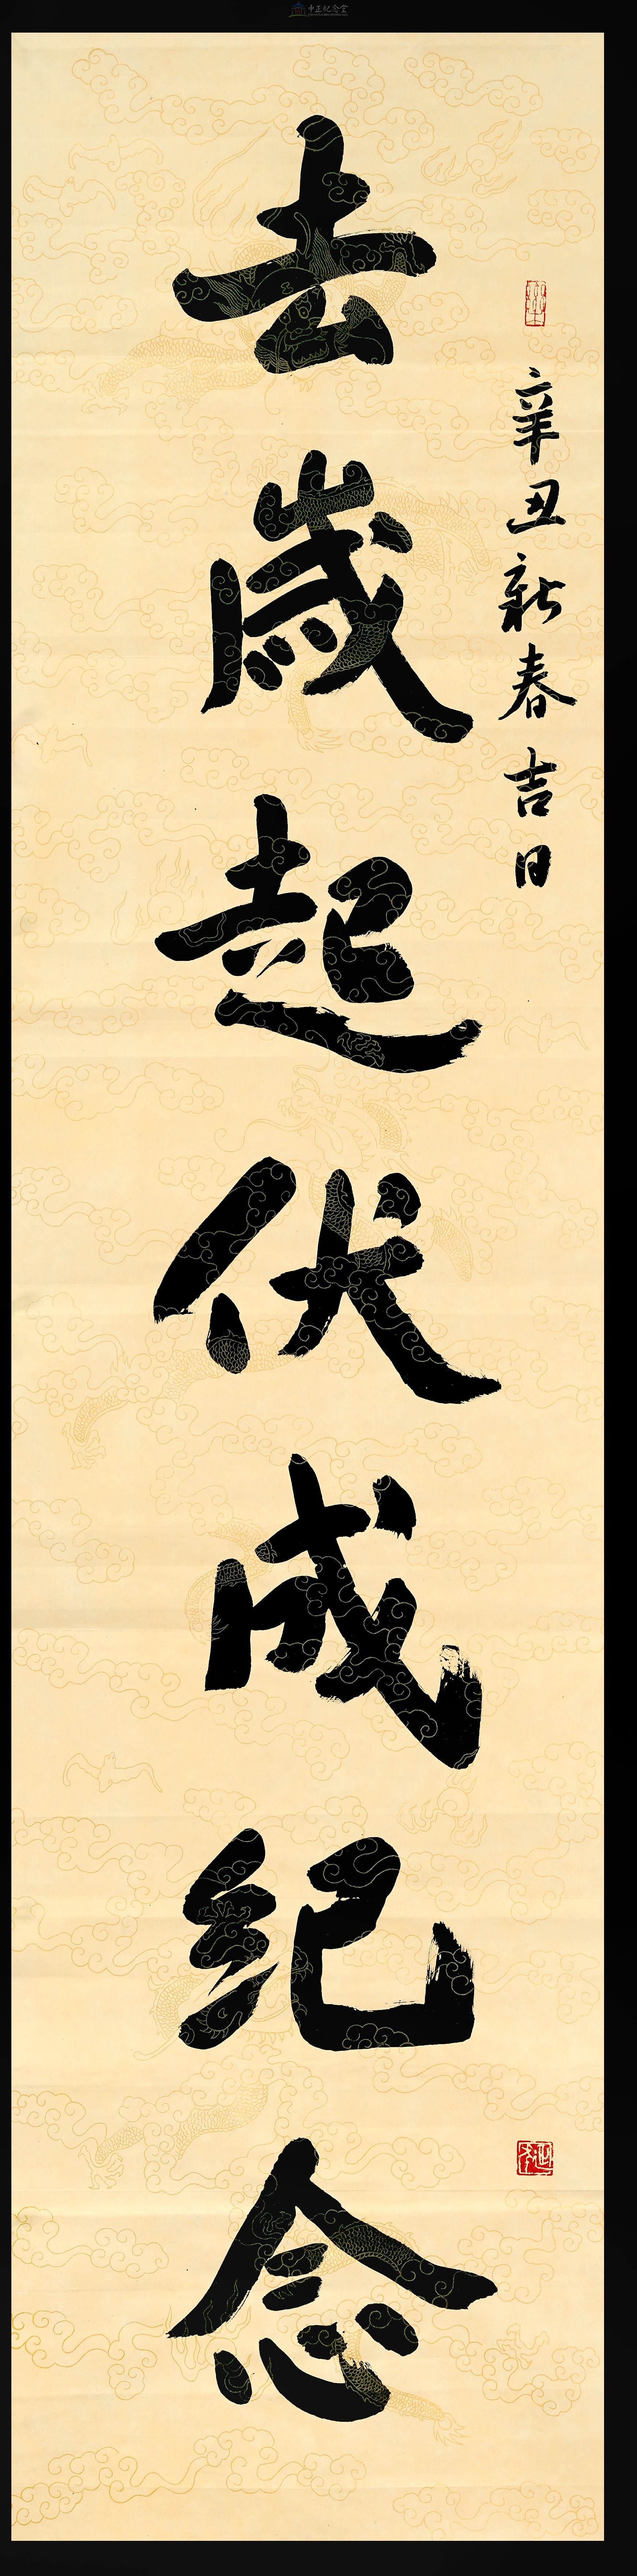 中正紀念堂
辛丑新春吉日
去歲起伏成紀念